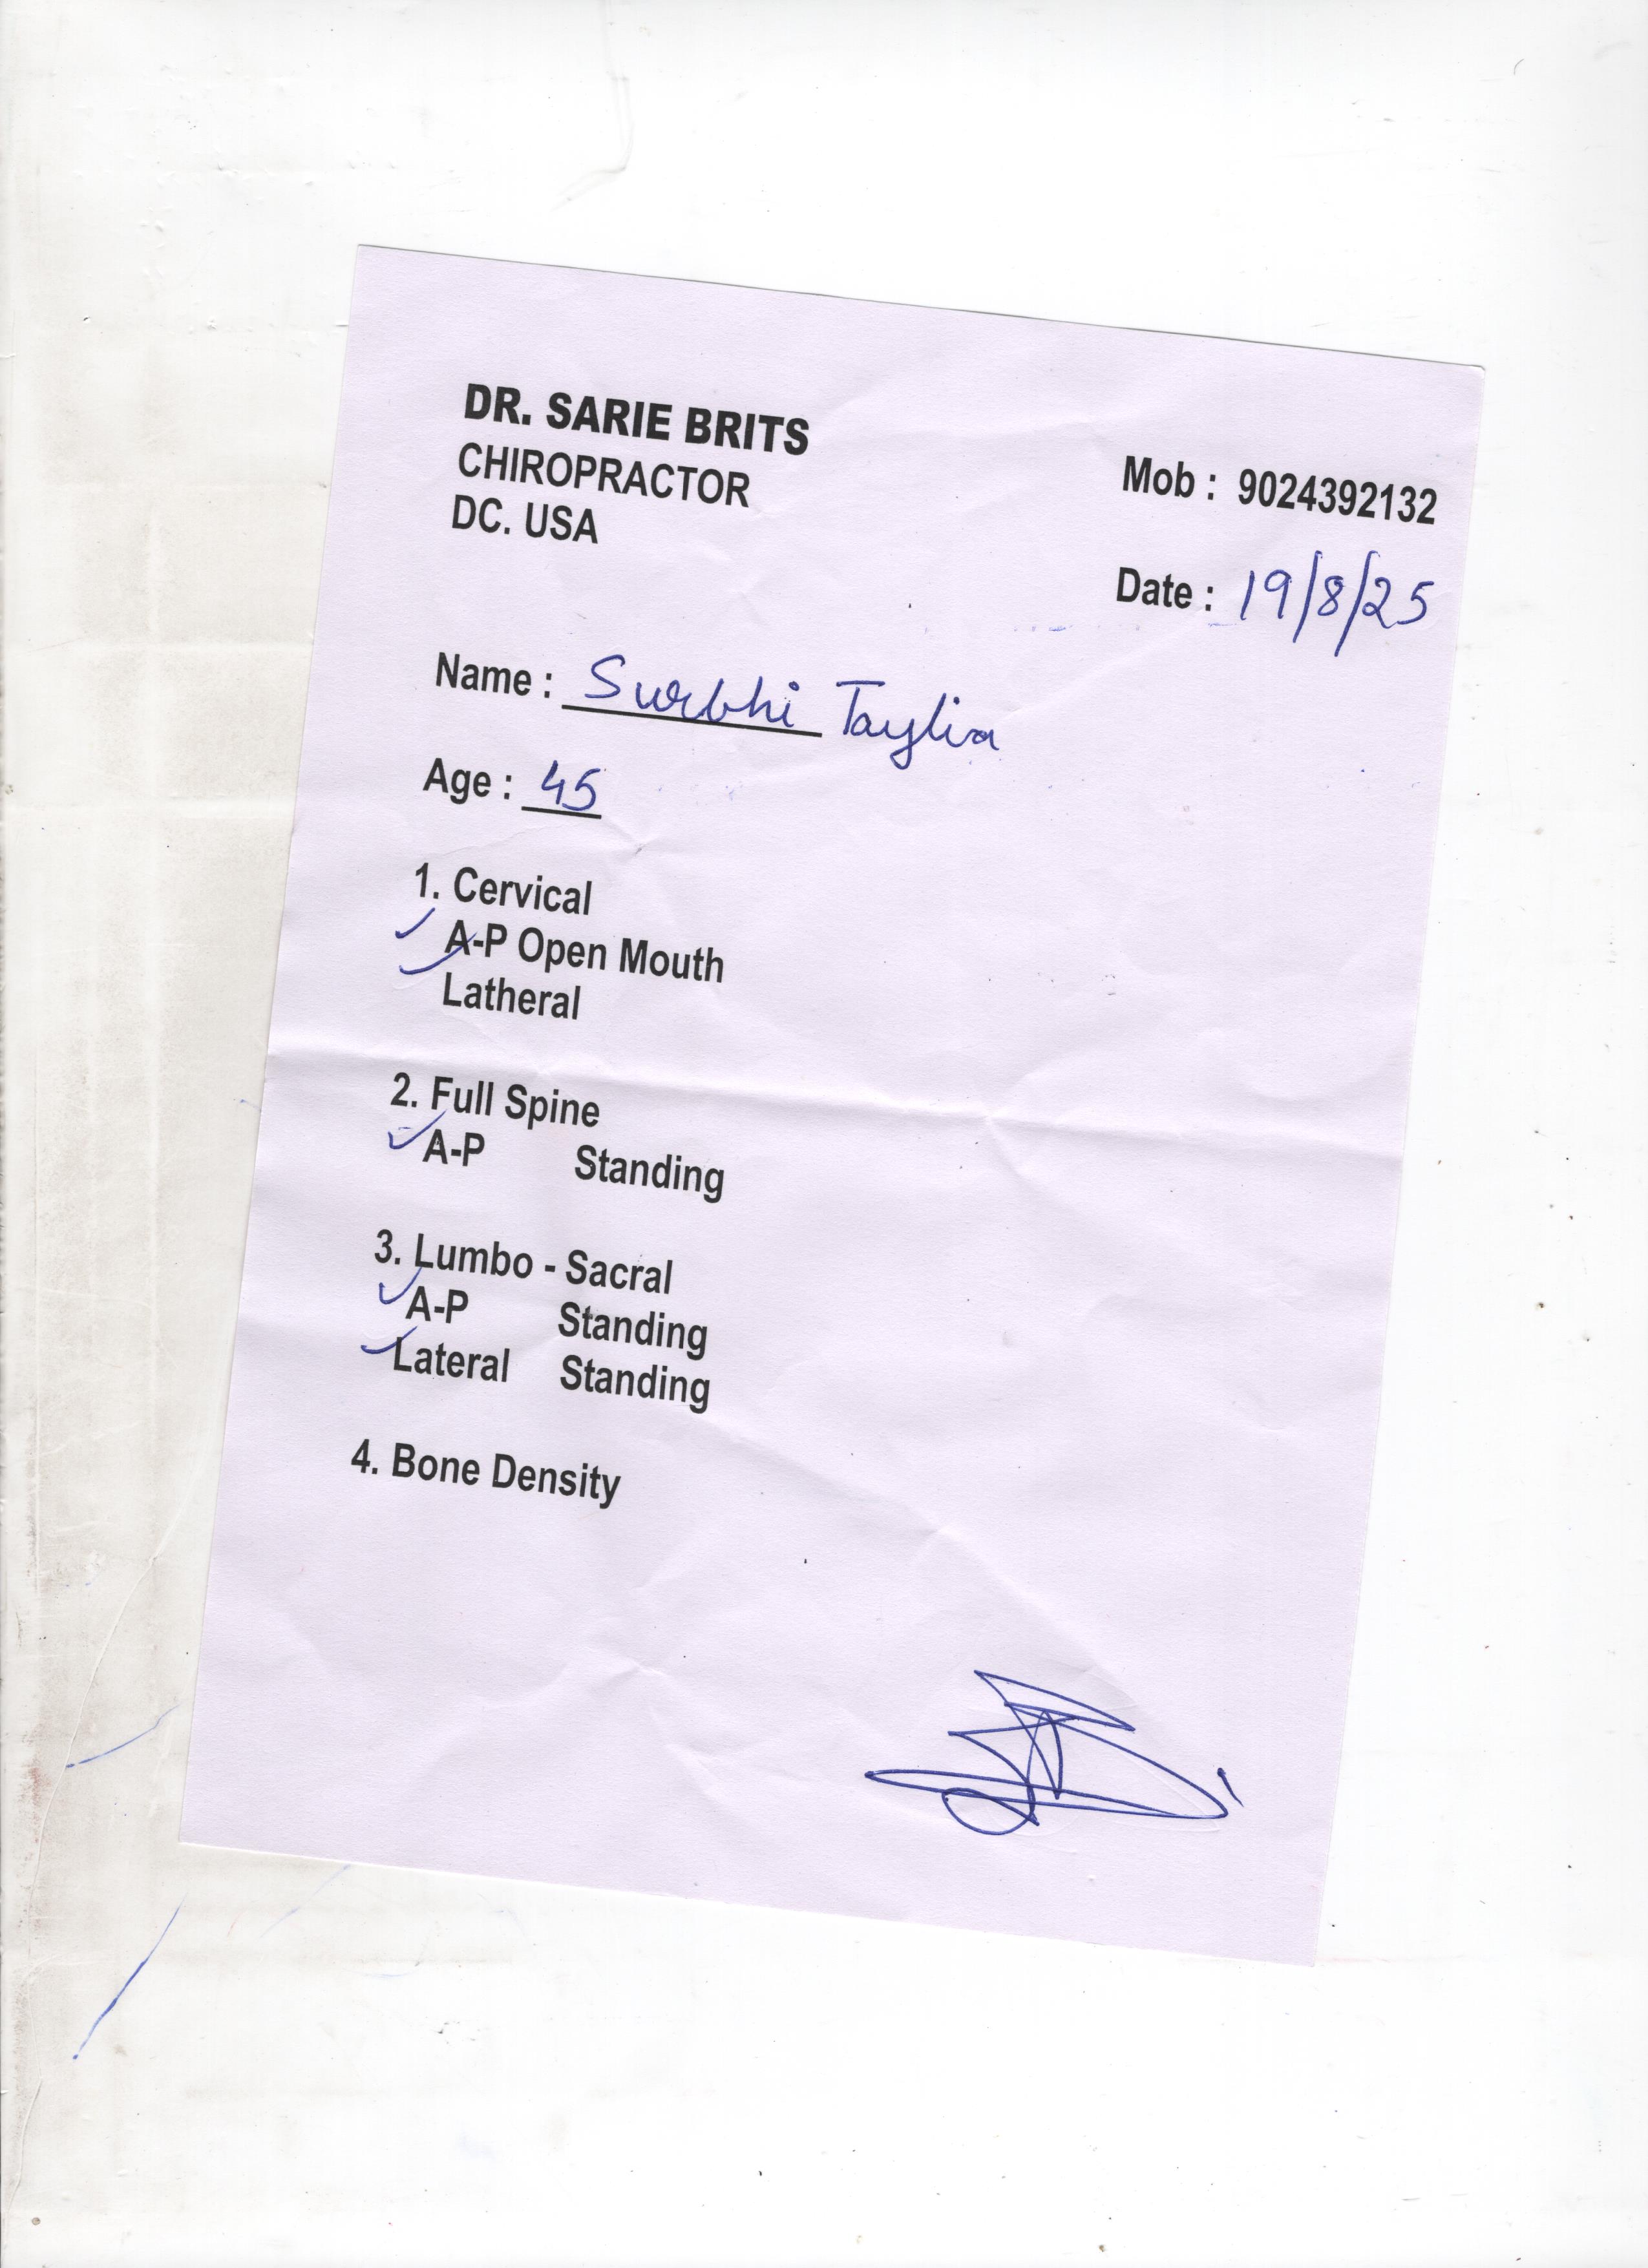 DR. SARIE BRITS
CHIROPRACTOR
DC. USA
Mob : 9024392132
Date : 19/8/25
Name : Surbhi Taylia
Age : 45
1. Cervical
✓ A-P Open Mouth
✓ Latheral
2. Full Spine
✓ A-P Standing
3. Lumbo - Sacral
✓ A-P Standing
✓ Lateral Standing
4. Bone Density